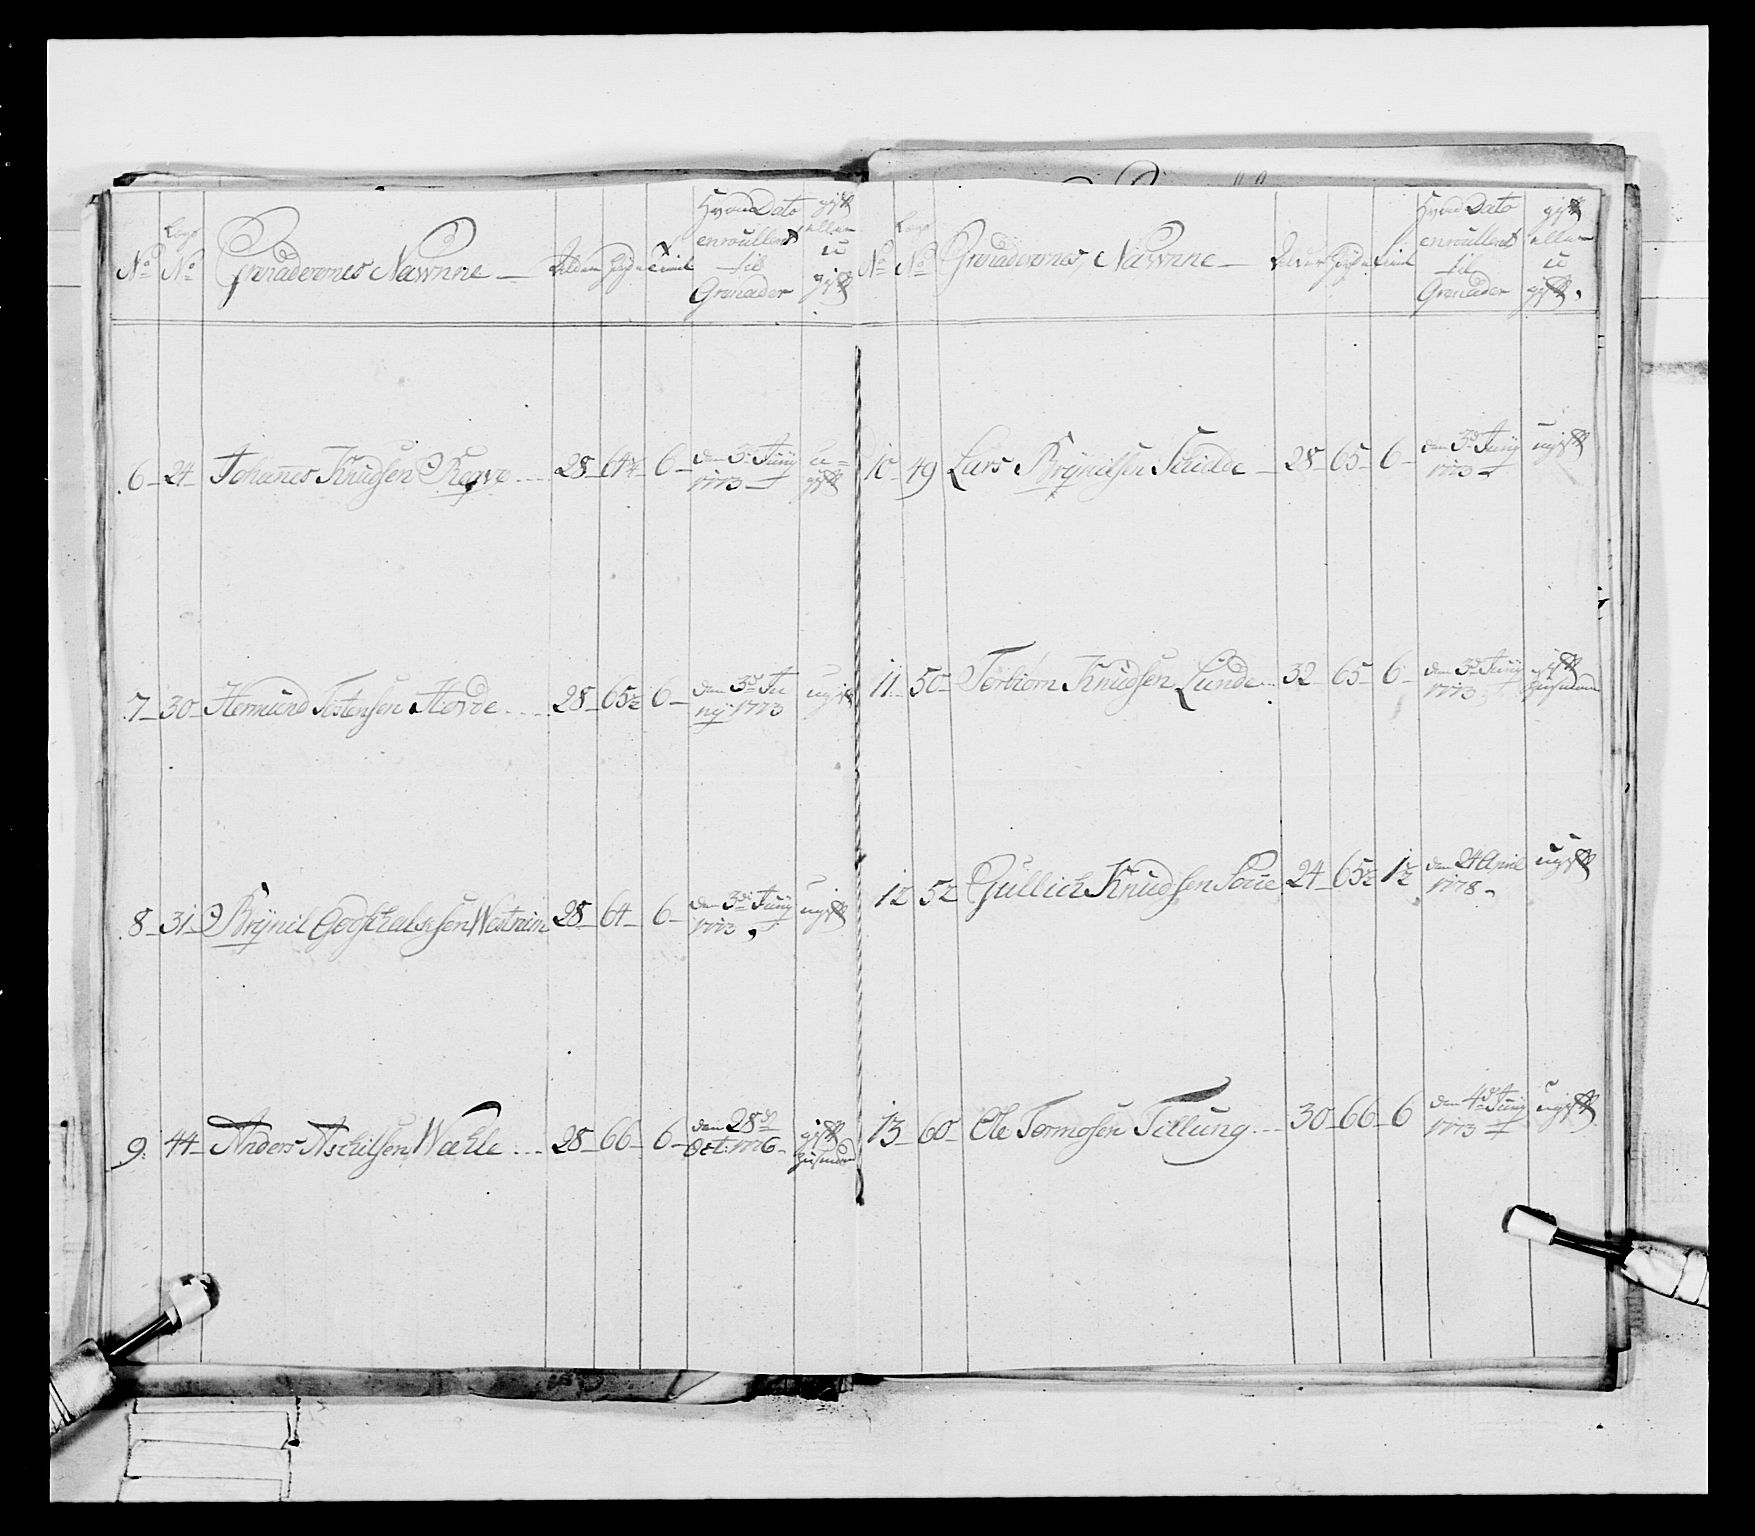 No
Lægs No
Grenadeernes Nawnne
Alder
Høyde
Tienist
Hvad Dato enroullert til Grenader
gift eller u gift
6 24 Johannes Knudsen Regve 28 64½ 6 den 3die Junÿ 1773 u=gift
7 30 Hermund Tostensen Hovde 28 65½ 6 den 3die Junÿ 1773 ugift
8 31 Brÿnil Godskalchsen Westreim 28 64 6 den 3die Junÿ 1773 ugift
9 44 Anders Aschilsen Wæhle 28 66 6 den 28de Oct: 1776 gift Huusmand
No
Lægs No
Grenadeernes Nawnne
Alder
Høyde
Tienist
Hvad Dato enroullert til Grenader
gift eller u gift
10 49 Lars Brÿnilsen Schilde 28 65 6 den 3die Junÿ 1773 ugift
11 50 Torbiörn Knudsen Lunde 32 65 6 den 3die Junÿ 1773 gift Huusmand
12 52 Gullich Knudsen Soue 24 65½ 1½ den 24 April 1778 ugift
13 60 Ole Tormosen Tillung 30 66 6 den 4de Junÿ 1773 ugift